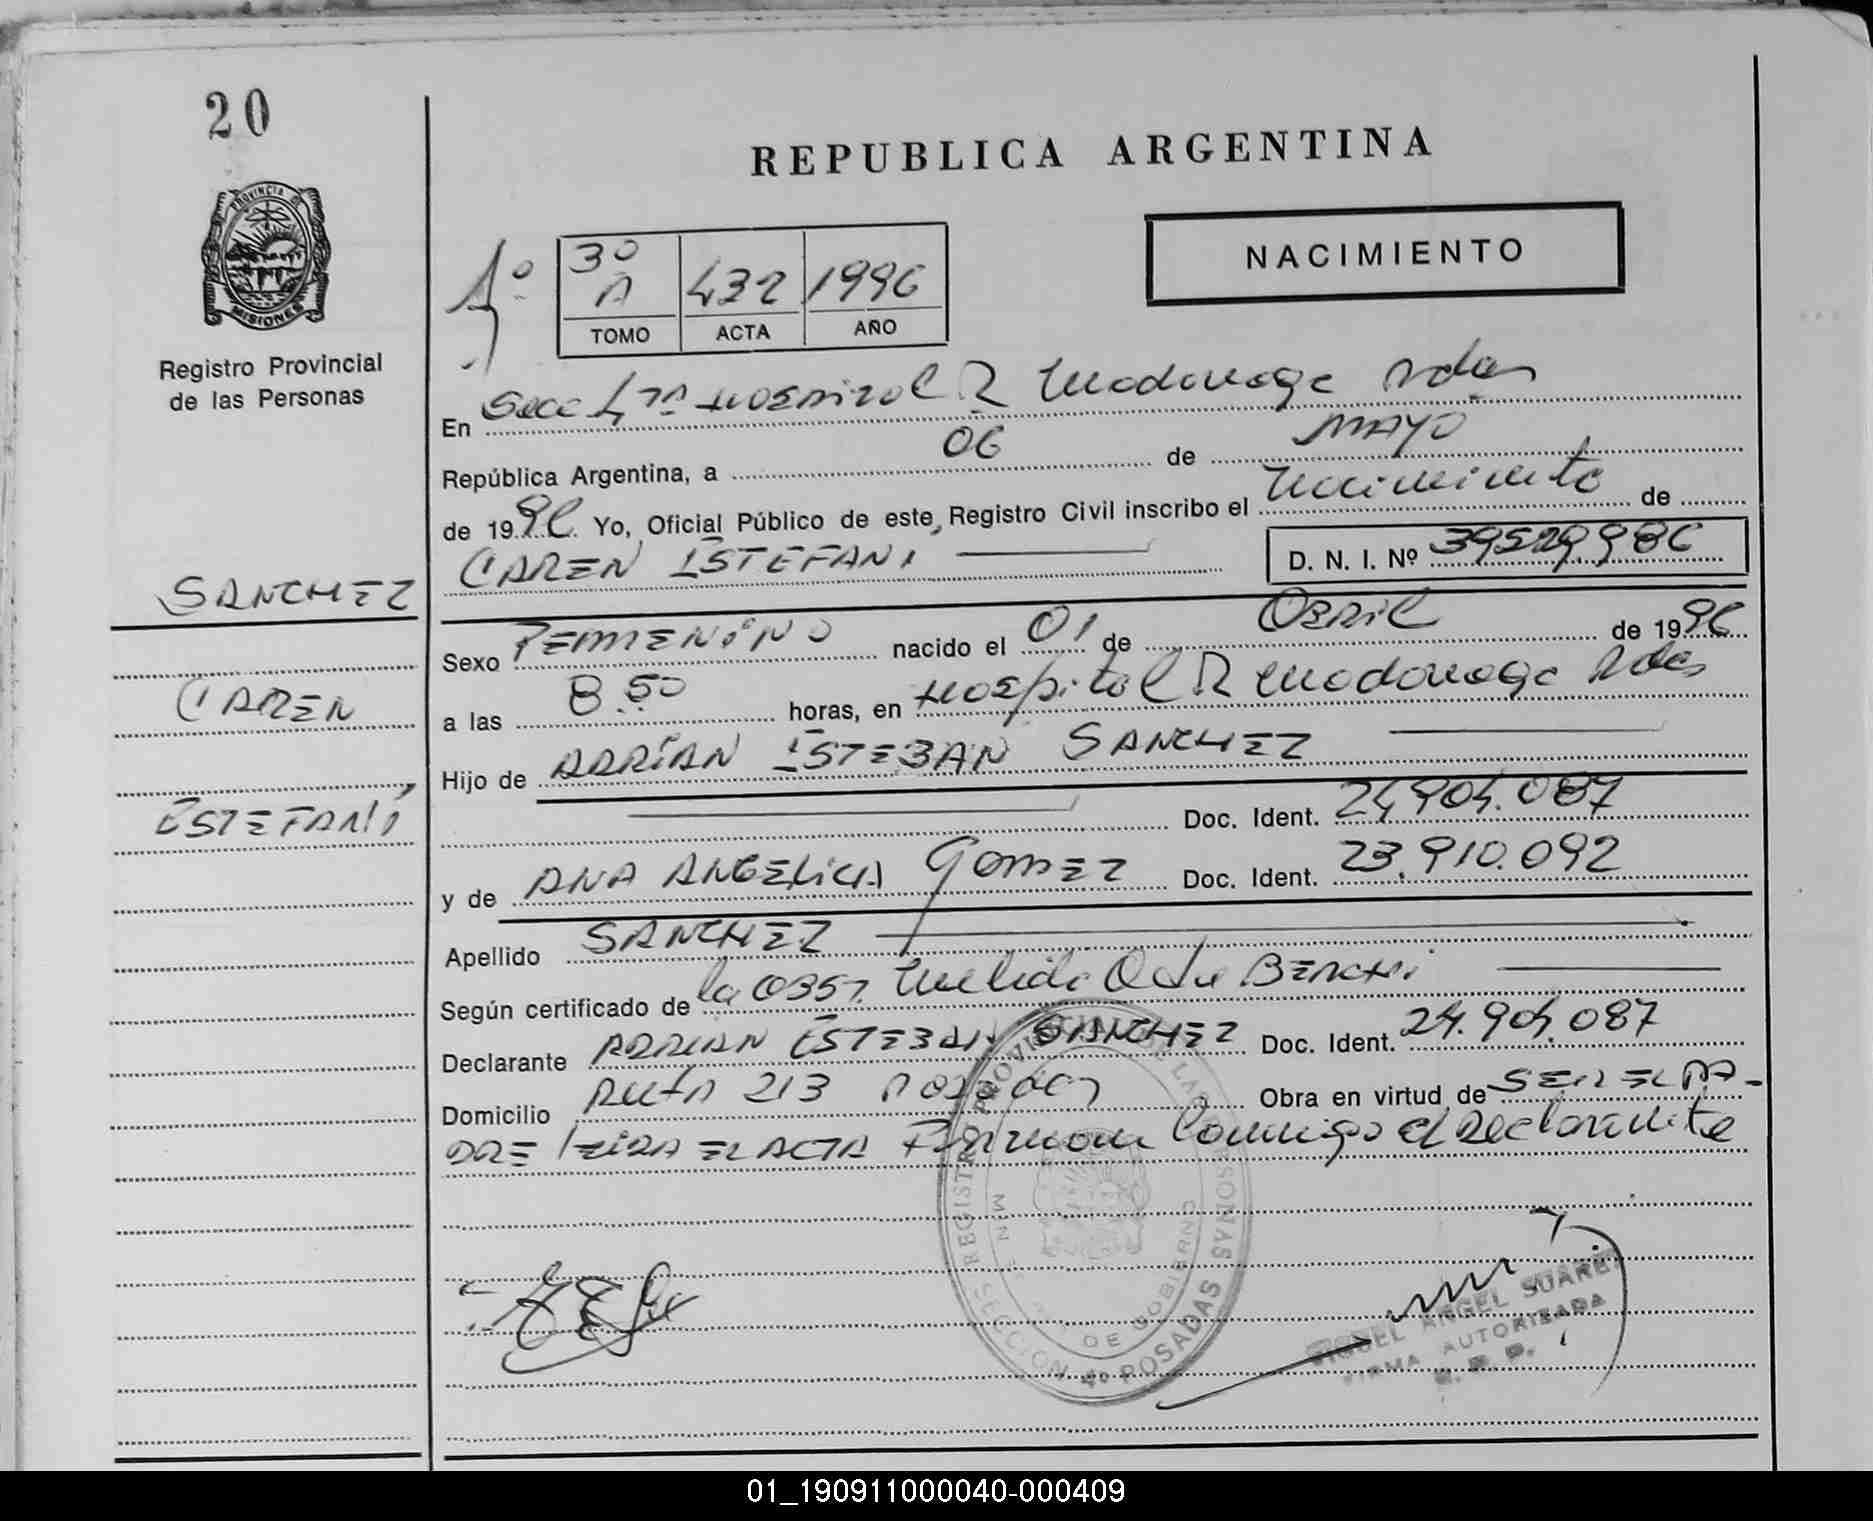 20
REPUBLICA ARGENTINA
PROVINCIA DE
MISIONES
Registro Provincial
de las Personas
1º
3º A
432
1996
TOMO
ACTA
AÑO
NACIMIENTO
En Secc 4ta Hospital R Madariaga Pdas
República Argentina, a 06 de MAYO
de 1996 Yo, Oficial Público de este Registro Civil inscribo el nacimiento de
CAREN ESTEFANI
D. N. I. Nº 39529986
SANCHEZ
CAREN
ESTEFANÍ
Sexo FEMENINO nacido el 01 de ABRIL de 1996
a las 8.50 horas, en Hospital R Madariaga Pdas
Hijo de ADRIAN ESTEBAN SANCHEZ
Doc. Ident. 24.904.087
y de ANA ANGELICA GOMEZ Doc. Ident. 23.910.092
Apellido SANCHEZ
Según certificado de la OBST.
Declarante ADRIAN ESTEBAN SANCHEZ Doc. Ident. 24.904.087
Domicilio RUTA 213 POSADAS Obra en virtud de SER EL PA-
DRE LEIDA EL ACTA Firman Conmigo el Declarante
REGISTRO PROVINCIAL DE LAS PERSONAS
MIN DE GOBIERNO
SECCION 4º POSADAS
MIGUEL ANGEL SUAREZ
FIRMA AUTORIZADA
01_190911000040-000409